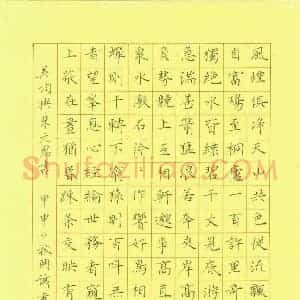 風煙俱淨天山共色從流飄
自富陽至桐廬一百許里奇
獨絕水皆縹碧千丈見底游
急湍甚箭猛浪若奔夾岸高
負勢競上互相軒邈爭高直
泉水激石泠泠作響好鳥相
蟬則千轉不窮猿則百叫無
者望峯息心經綸世務者窺
上蔽在晝猶昏疎條交映有
吳均與朱元思書 甲申 秋 書
Shufaziliao.com